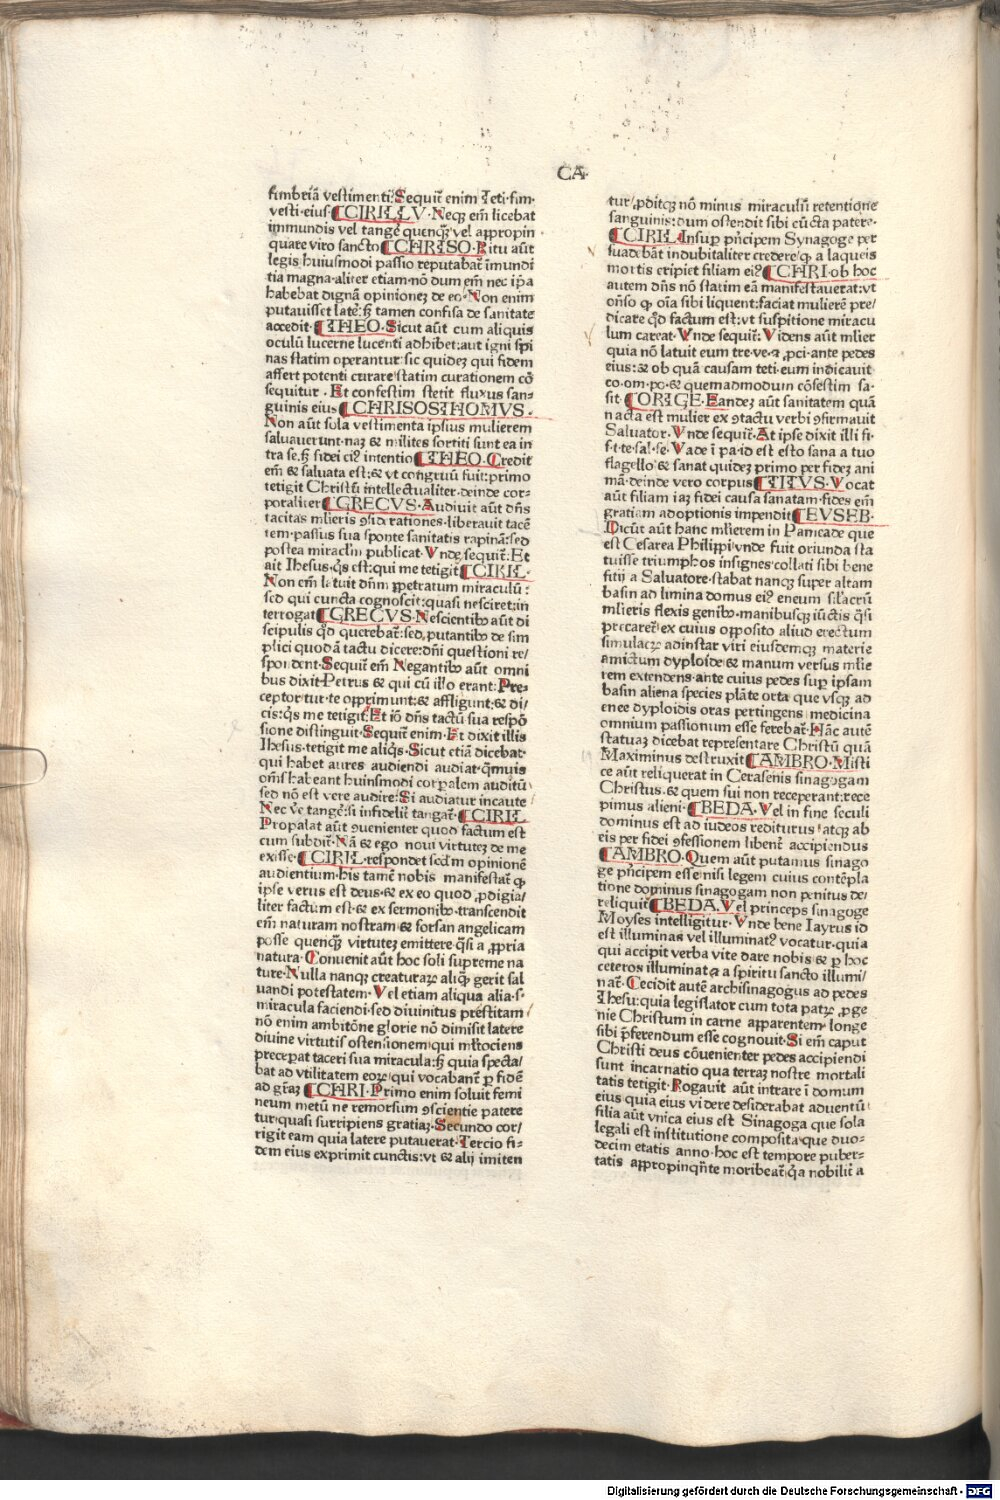 CA
fimbriā vestimenti. Sequit̄ enim Teti. fim.
vesti. eius. CIRILLV. Neqꝫ em̄ licebat
immundis vel tange᷑ quenqꝫ vel appropin
quare viro sancto CHRISO. Ritu aūt
legis huiusmodi passio reputabat̄ imundi
tia magna. aliter etiam. nō dum em̄ nec ip̄a
habebat dignā opinionez de eo. Non enim
putauisset late᷑: sꝫ tamen confisa de sanitate
accedit. THEO. Sicut aūt cum aliquis
oculū lucerne lucenti adhibet: aut igni spi
nas statim operantur: sic quidez qui fidem
affert potenti curare statim curationem cō
sequitur. Et confestim stetit fluxus san-
guinis eius CHRISOSTHOMVS.
Non aūt sola vestimenta ipsius mulierem
saluauerunt. naꝫ & milites sortiti sunt ea in
tra se. sꝫ fidei ei⁹ intentio THEO. Credit
em̄ & saluata est: & vt congruū fuit: primo
tetigit Christū intellectualiter. deinde cor-
poraliter GRECVS. Audiuit aūt dn̄s
tacitas mlieris ꝯsideratones. liberauit tacē
tem. passus sua sponte sanitatis rapinā: sed
postea miraclm̄ publicat. Vnde sequit̄. Et
ait Ihesus. qͥs est: qui me tetigit CIRIL.
Non em̄ latuit dn̄m ꝑpetratum miraculū:
sed qui cuncta cognoscit: quasi nesciret: in
terrogat GRECVS. Nescientibꝰ aūt di
scipulis qͩ querebat̄: sed putantibꝰ de sim
plici quodā tactu dicere: dn̄i questioni re/
spondent. Sequit̄ em̄ Negantibꝰ aūt omni
bus dixit Petrus & qui cū illo erant: Pre-
ceptor tur. te opprimunt: & affligunt: & di/
cis: qͥs me tetigit. Et iō dn̄s tactū sua respō
sione distinguit. Sequit̄ enim. Et dixit illis
Ihesus. tetigit me aliqͥs. Sicut etiā dicebat.
qui habet aures audiendi audiat. qͫuis
om̄s habeant huiusmodi corꝑalem auditū
sed nō est vere audire: Si audiatur incaute
Nec ve᷑ tange᷑: si infidelit᷑ tangat̄. CIRIL
Propalat aūt ꝯuenienter quod factum est
cum subdit̄. Nā & ego noui virtutez de me
exisse. CIRIL. respondet scd̄m opinionē
audientium. his tamē nobis manifestat̄ ꝙ
ipse verus est deus. & ex eo quod ꝓdigia/
liter factum est. & ex sermonibꝰ. transcendit
em̄ naturam nostram & forsan angelicam
posse quenqꝫ virtutez emittere qͣsi a ꝓpria
natura. Conuenit aūt hoc soli supreme na
ture. Nulla nanqꝫ creaturaꝝ aliqͫ gerit sal
uandi potestatem. Vel etiam aliqua alia. s.
miracula faciendi. sed diuinitus prestitam
nō enim ambitōne glorie nō dimisit latere
diuine virtutis ostensionem. qui mltociens
preceꝑat taceri sua miracula: sꝫ quia specta/
bat ad vtilitatem eoꝝ qui vocabant̄ ꝑ fidē
ad grāz CHRI. Primo enim soluit femi
neum metū ne remorsum ꝯscientie patere
tur. quasi surripiens gratiaz. Secundo cor/
rigit eam quia latere putauerat. Tercio fi-
dem eius exprimit cunctis: vt & alij imiten
tur. ꝓditqꝫ nō minus miraculū retentione
sanguinis: dum ostendit sibi cūcta patere.
CIRIL. Insuꝑ pn̄cipem Synagoge per
suadebāt indubitaliter credere: ꝙ a laqueis
mortis eripiet filiam ei⁹ CHRI. ob hoc
autem dn̄s nō statim eā manifestauerat: vt
on̄so ꝙ oīa sibi liquent: faciat mulierē pre/
dicare qͩ factum est: vt suspitione miracu
lum careat. Vnde sequit̄: Videns aūt mlier
quia nō latuit eum tre. ve. & ꝓci. ante pedes
eius: & ob quā causam teti. eum indicauit
co. om. po. & quemadmodum cōfestim sa-
sit CORIGE. Eandez aūt sanitatem quā
nacta est mulier ex ꝯtactu verbi ꝯfirmauit
Saluator. Vnde sequit̄. At ipse dixit illi fi.
f. t. te. sal. fe. Vade ī pa. id est esto sana a tuo
flagello. & sanat quidez primo per fidez ani
mā. deinde vero corpus TITVS. Vocat
aūt filiam iaz fidei causa sanatam. fides em̄
gratiam adoptionis impendit EVSEB.
Dicūt aūt hanc mlierem in Paneade que
est Cesarea Philippi: vnde fuit oriunda sta
tuisse triumphos insignes collati sibi bene
fitij a Saluatore. stabat nanqꝫ super altam
basin ad limina domus ei⁹ eneum sil̄acrū
mlieris flexis genibꝰ. manibusqꝫ iūctis qͣsi
precaret̄. ex cuius opposito aliud erectum
simulacꝝ adinstar viri eiusdemqꝫ materie
amictum dyploide: & manum versus mlie
rem extendens. ante cuius pedes suꝑ ipsam
basin aliena species plāte orta que vsqꝫ ad
enee dyploidis oras pertingens medicina
omnium passionum esse ferebat̄. Hāc autē
statuaꝫ dicebat representare Christū quā
Maximinus destruxit AMBRO. Misti
ce aūt reliquerat in Gerasenis sinagogam
Christus. & quem sui non receperant: rece
pimus alieni. BEDA. Vel in fine seculi
dominus est ad iudeos rediturus atqꝫ ab
eis per fidei ꝯfessionem libent᷑ accipiendus
AMBRO. Quem aūt putamus sinago
ge pn̄cipem esse nisi legem cuius contēpla
tione dominus sinagogam non penitus de/
reliquit BEDA. Vel princeps sinagoge
Moyses intelligitur. Vnde bene Iayrus id
est illuminas vel illuminat⁹ vocatur. quia
qui accipit verba vite dare nobis & ꝑ hoc
ceteros illuminat & a spiritu sancto illumi/
nat̄. Cecidit autē archisinagogus ad pedes
Ihesu: quia legislator cum tota patꝝ ꝓge
nie Christum in carne apparentem longe
sibi p̄ferendum esse cognouit. Si em̄ caput
Christi deus cōuenienter pedes accipiendi
sunt incarnatio qua terraz nostre mortali
tatis tetigit. Rogauit aūt intrare ī domum
eius quia eius videre desiderabat aduentū
filia aūt vnica eius est Sinagoga que sola
legali est institutione composita que duo-
decim etatis anno. hoc est tempore puber-
tatis appropinqn̄te moribeat̄. qͥa nobilit᷑ a
Digitalisierung gefördert durch die Deutsche Forschungsgemeinschaft - DFG